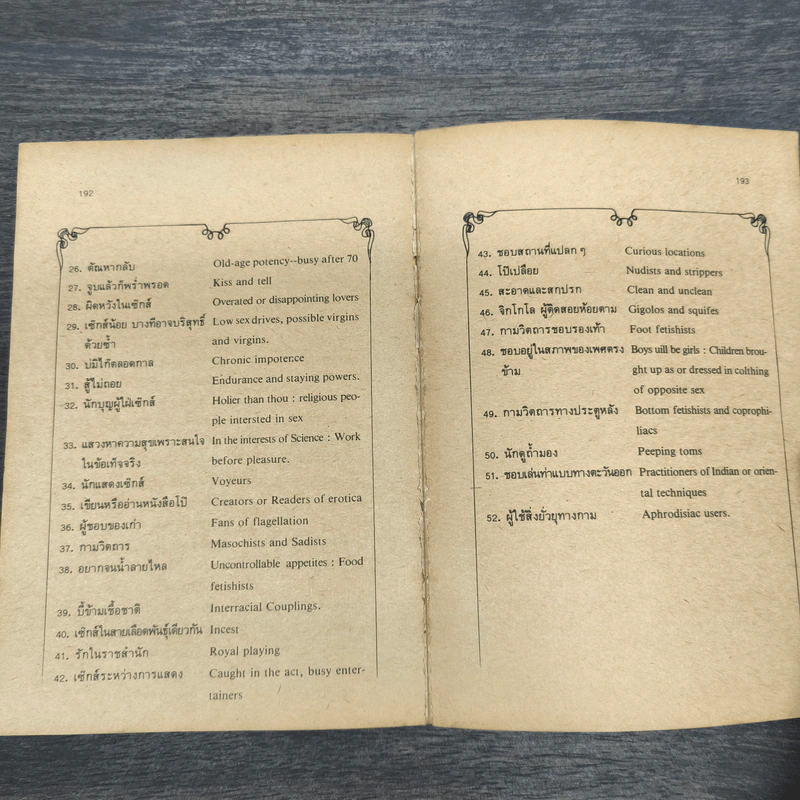 192
26. ตัณหากลับ Old-age potency--busy after 70
27. จูบแล้วก็พร่ำพรอด Kiss and tell
28. ผิดหวังในเซ็กส์ Overated or disappointing lovers
29. เซ็กส์น้อย บางทีอาจบริสุทธิ์ Low sex drives, possible virgins
ด้วยซ้ำ and virgins.
30. บ่มิไก๊ตลอดกาล Chronic impotence
31. สู้ไม่ถอย Endurance and staying powers.
32. นักบุญผู้ใฝ่เซ็กส์ Holier than thou : religious peo-
ple intersted in sex
33. แสวงหาความสุขเพราะสนใจ In the interests of Science : Work
ในข้อเท็จจริง before pleasure.
34. นักแสดงเซ็กส์ Voyeurs
35. เขียนหรืออ่านหนังสือโป๊ Creators or Readers of erotica
36. ผู้ชอบของเก่า Fans of flagellation
37. กามวิตถาร Masochists and Sadists
38. อยากจนน้ำลายไหล Uncontrollable appetites : Food
fetishists
39. บี้ข้ามเชื้อชาติ Interracial Couplings.
40. เซ็กส์ในสายเลือดพันธุ์เดียวกัน Incest
41. รักในราชสำนัก Royal playing
42. เซ๊กส์ระหว่างการแสดง Caught in the act, busy enter-
tainers
193
43. ชอบสถานที่แปลก ๆ Curious locations
44. โป๊เปลือย Nudists and strippers
45. สะอาดและสกปรก Clean and unclean
46. จิกโกโล ผู้ติดสอยห้อยตาม Gigolos and squifes
47. กามวิตถารชอบรองเท้า Foot fetishists
48. ชอบอยู่ในสภาพของเพศตรง Boys uill be girls : Children brou-
ข้าม ght up as or dressed in colthing
of opposite sex
49. กามวิตถารทางประตูหลัง Bottom fetishists and coprophi-
liacs
50. นักดูถ้ำมอง Peeping toms
51. ชอบเล่นท่าแบบทางตะวันออก Practitioners of Indian or orien-
tal techniques
52. ผู้ใช้สิ่งยั่วยุทางกาม Aphrodisiac users.